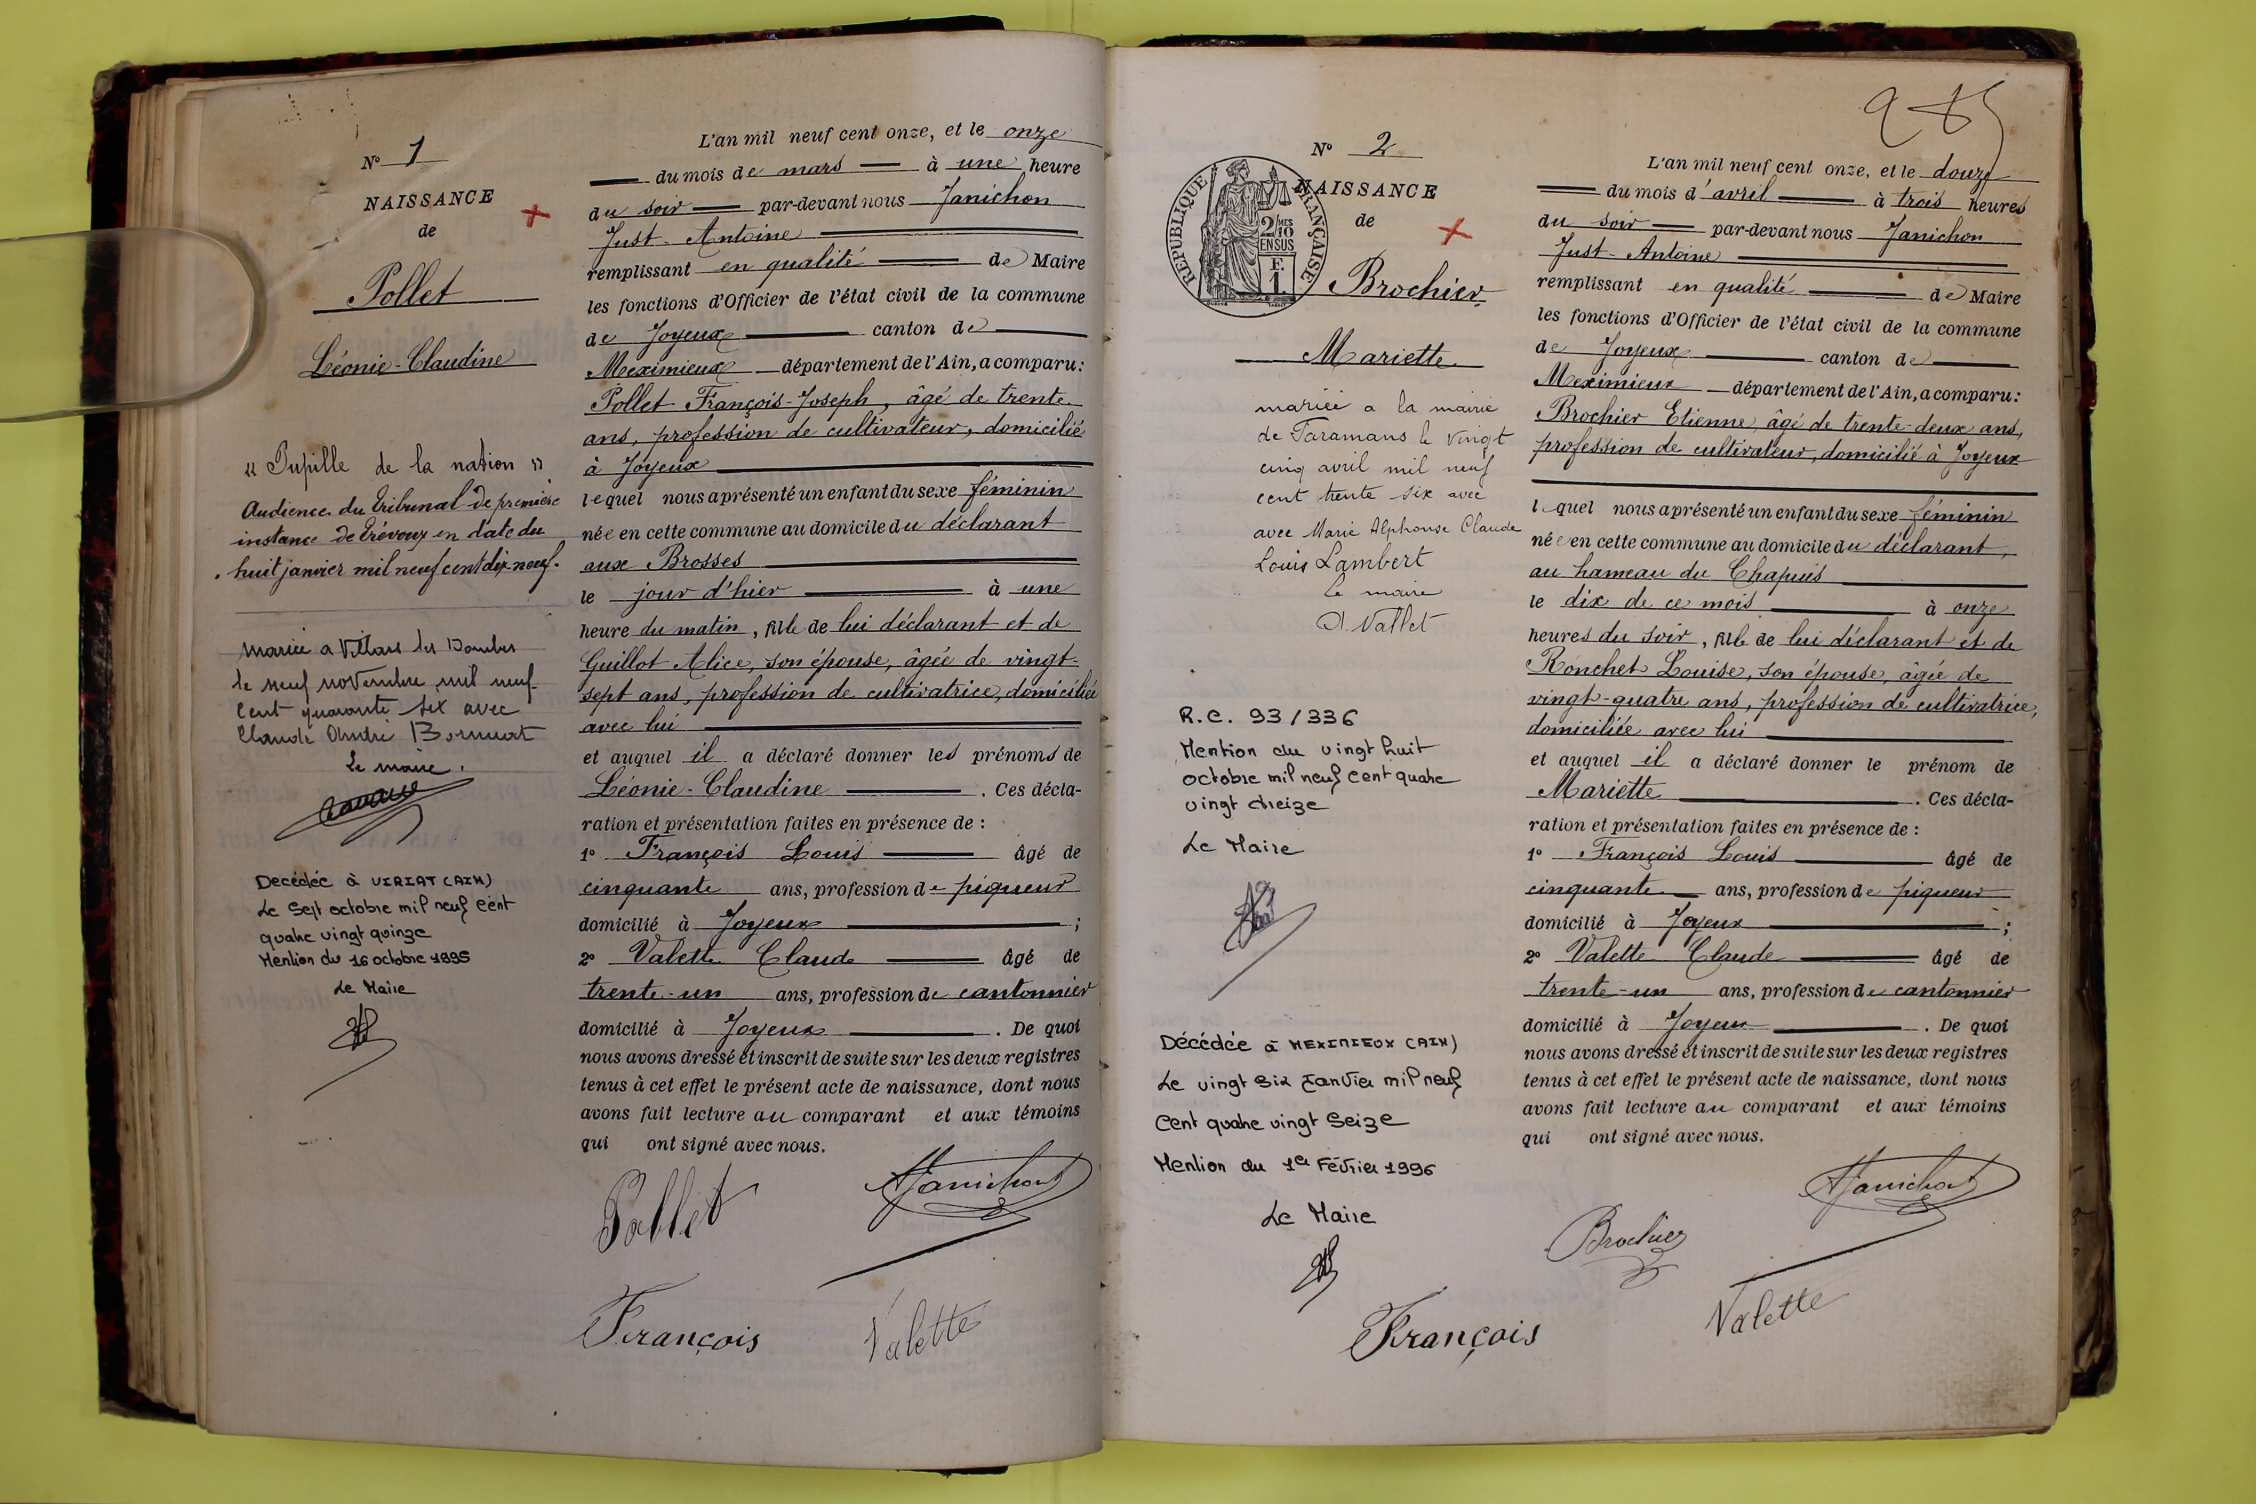 N° 1
NAISSANCE
de
Pollet
Léonie-Claudine
« Pupille de la nation »
Audience du tribunal de première
instance de Trévoux en date du
huit janvier mil neuf cent dix neuf.
Mariée a Villars les Dombes
le neuf novembre mil neuf
cent quarante six avec
Claude André
Le maire.
Decédée à VIRIAT (AIN)
Le Sept octobre mil neuf cent
quatre vingt quinze
Mention du 16 octobre 1995
Le Maire
L'an mil neuf cent onze, et le onze
du mois de mars à une heure
du soir par-devant nous Janichon
Just-Antoine
remplissant en qualité de Maire
les fonctions d'Officier de l'état civil de la commune
de Joyeux canton de
Meximieux département de l'Ain, a comparu:
Pollet François-Joseph, âgé de trente
ans, profession de cultivateur, domicilié
à Joyeux
lequel nous a présenté un enfant du sexe féminin
née en cette commune au domicile du déclarant
aux Brosses
le jour d'hier à une
heure du matin, fille de lui déclarant et de
Guillot Alice, son épouse, âgée de vingt-
sept ans, profession de cultivatrice, domiciliée
avec lui
et auquel il a déclaré donner les prénoms de
Léonie-Claudine . Ces décla-
ration et présentation faites en présence de :
1° François Louis âgé de
cinquante ans, profession de piqueur
domicilié à Joyeux ;
2° Valette Claude âgé de
trente-un ans, profession de cantonnier
domicilié à Joyeux . De quoi
nous avons dressé et inscrit de suite sur les deux registres
tenus à cet effet le présent acte de naissance, dont nous
avons fait lecture au comparant et aux témoins
qui ont signé avec nous.
Pollet
AJanichon
François
Valette
285
N° 2
NAISSANCE
de
RÉPUBLIQUE FRANÇAISE
2/MES
10
EN SUS
F.
1
Brochier
Mariette
mariée a la mairie
de Faramans le vingt
cinq avril mil neuf
cent trente six avec
avec Marie Alphonse Claude
Louis Lambert
Le maire
A Vallet
R.C. 93/336
Mention du vingt huit
octobre mil neuf cent quatre
vingt treize
Le Maire
Décédée à MEXIMIEUX (AIN)
Le vingt six Janvier mil neuf
Cent quatre vingt Seize
Mention du 1er Février 1996
Le Maire
L'an mil neuf cent onze, et le douze
du mois d'avril à trois heures
du soir par-devant nous Janichon
Just-Antoine
remplissant en qualité de Maire
les fonctions d'Officier de l'état civil de la commune
de Joyeux canton de
Meximieux département de l'Ain, a comparu:
Brochier Etienne, âgé de trente-deux ans,
profession de cultivateur, domicilié à Joyeux
lequel nous a présenté un enfant du sexe féminin
née en cette commune au domicile du déclarant,
au hameau du Chapuis
le dix de ce mois à onze
heures du soir, fille de lui déclarant et de
Ronchet Louise, son épouse, âgée de
vingt-quatre ans, profession de cultivatrice,
domiciliée avec lui
et auquel il a déclaré donner le prénom de
Mariette . Ces décla-
ration et présentation faites en présence de :
1° François Louis âgé de
cinquante ans, profession de piqueur
domicilié à Joyeux ;
2° Valette Claude âgé de
trente-un ans, profession de cantonnier
domicilié à Joyeux . De quoi
nous avons dressé et inscrit de suite sur les deux registres
tenus à cet effet le présent acte de naissance, dont nous
avons fait lecture au comparant et aux témoins
qui ont signé avec nous.
AJanichon
Brochier
Valette
François